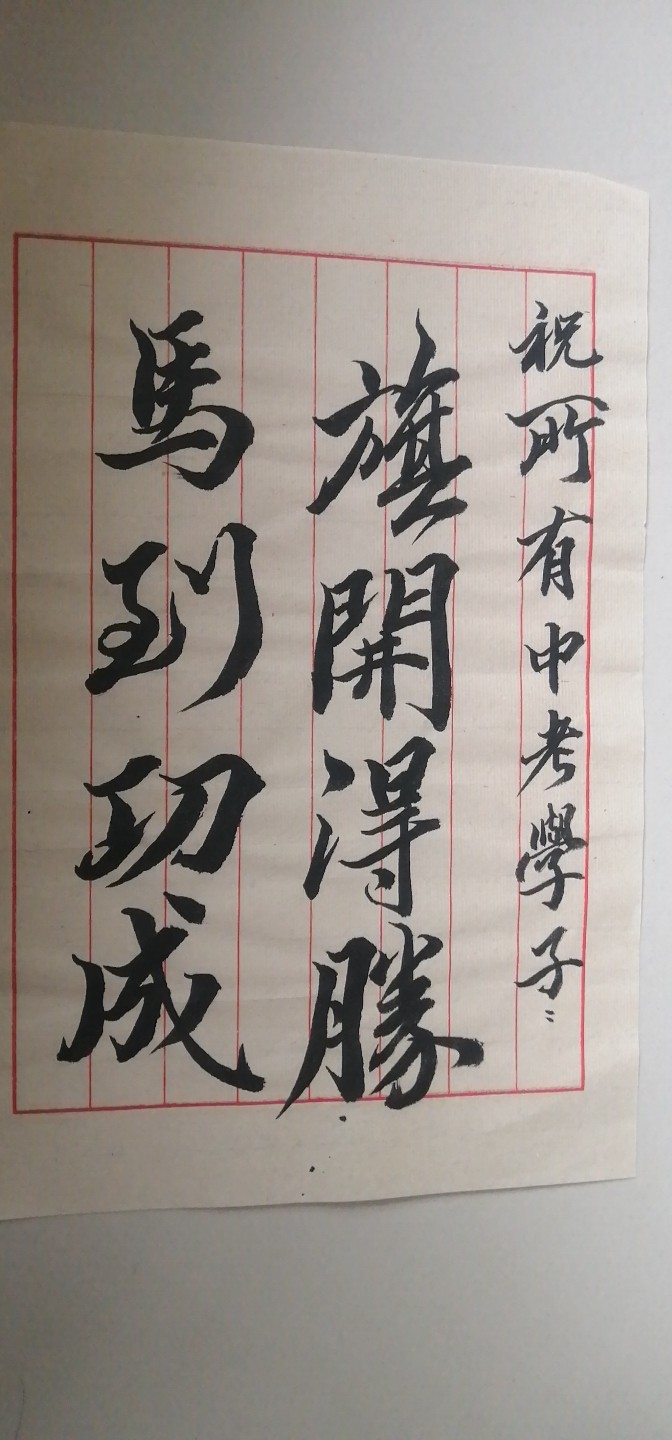 祝所有中考學子:
旗開得勝
馬到功成